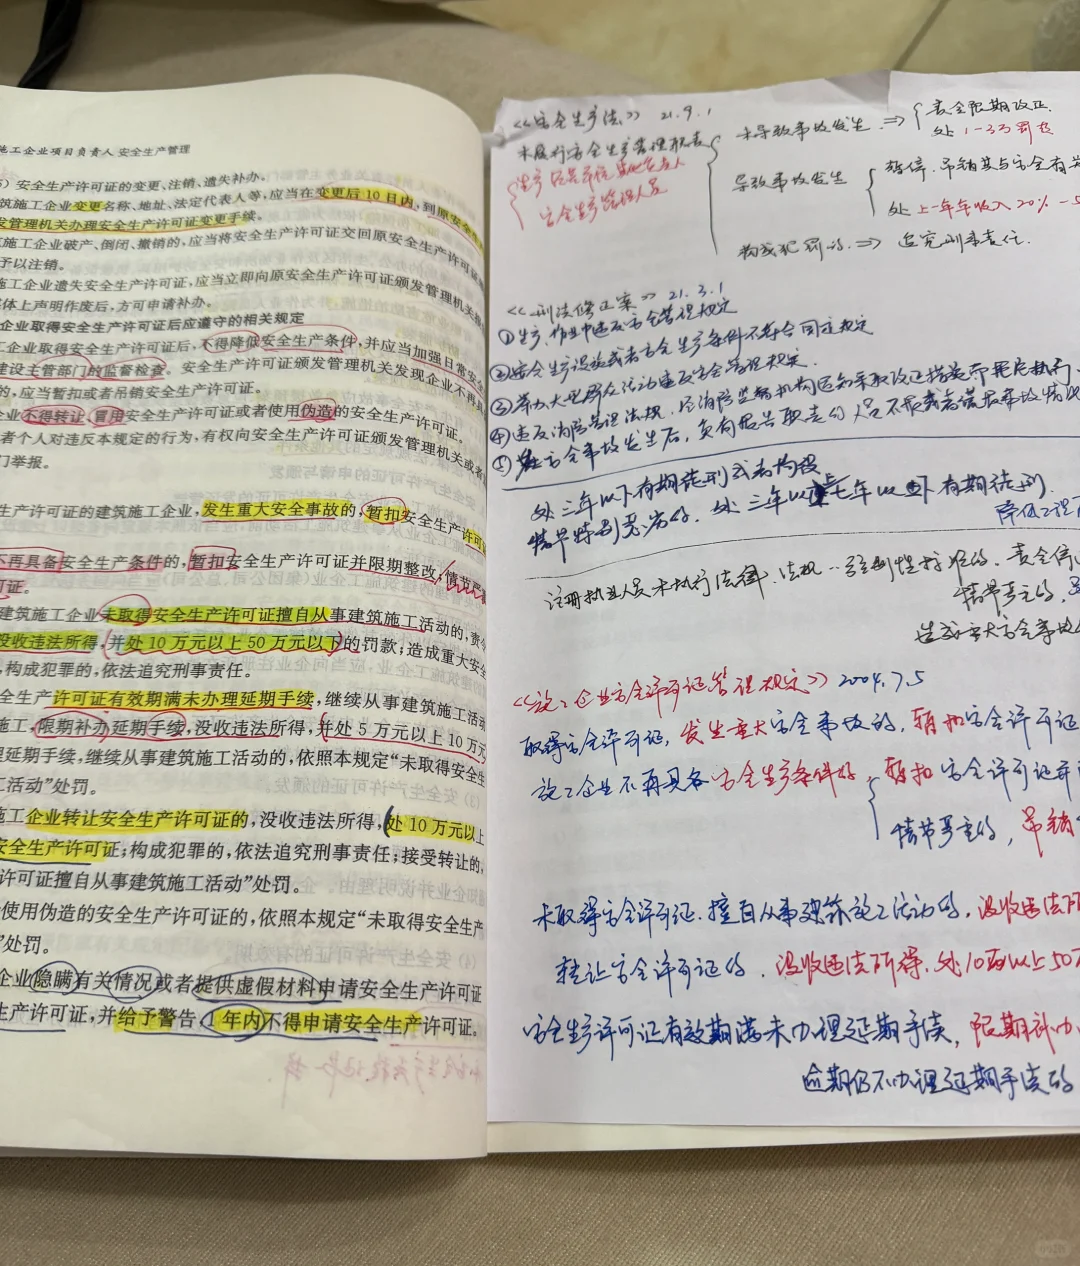 施工企业项目负责人 安全生产管理
)安全生产许可证的变更、注销、遗失补办。
筑施工企业变更名称、地址、法定代表人等，应当在变更后10日内，到原安全生
发管理机关办理安全生产许可证变更手续。
施工企业破产、倒闭、撤销的，应当将安全生产许可证交回原安全生产许可证颁
予以注销。
施工企业遗失安全生产许可证，应当立即向原安全生产许可证颁发管理机关报
体上声明作废后，方可申请补办。
企业取得安全生产许可证后应遵守的相关规定
工企业取得安全生产许可证后，不得降低安全生产条件，并应当加强日常安全
建设主管部门的监督检查。安全生产许可证颁发管理机关发现企业不再具
的，应当暂扣或者吊销安全生产许可证。
业不得转让、冒用安全生产许可证或者使用伪造的安全生产许可证。
者个人对违反本规定的行为，有权向安全生产许可证颁发管理机关或者
门举报。
生产许可证的建筑施工企业，发生重大安全事故的，暂扣安全生产许可证
不再具备安全生产条件的，暂扣安全生产许可证并限期整改；情节严
可证。
建筑施工企业未取得安全生产许可证擅自从事建筑施工活动的，责令
没收违法所得，并处10万元以上50万元以下的罚款；造成重大安全
，构成犯罪的，依法追究刑事责任。
全生产许可证有效期满未办理延期手续，继续从事建筑施工活动
施工，限期补办延期手续，没收违法所得，并处5万元以上10万元
理延期手续，继续从事建筑施工活动的，依照本规定“未取得安全生
工活动”处罚。
施工企业转让安全生产许可证的，没收违法所得，处10万元以上
安全生产许可证；构成犯罪的，依法追究刑事责任；接受转让的，
许可证擅自从事建筑施工活动”处罚。
使用伪造的安全生产许可证的，依照本规定“未取得安全生产
”处罚。
企业隐瞒有关情况或者提供虚假材料申请安全生产许可证
生产许可证，并给予警告，1年内不得申请安全生产许可证。
《安全生产法》 21.9.1
未履行安全生产管理职责
安全生产管理人员
未导致事故发生 ⇒ 责令限期改正
处 1-3万罚款
导致事故发生
暂停、吊销其与安全有
处上一年年收入20% -5
构成犯罪的 ⇒ 追究刑事责任.
《刑法修正案》 21.3.1
①生产、作业中违反安全管理规定
②安全生产设施或者安全生产条件不符合国家规定
③举办大型群众活动违反安全管理规定.
④违反消防管理法规，经消防监督机构通知采取改正措施而拒绝执行.
⑤在安全事故发生后，负有报告职责的人员不报或者谎报事故情况
处三年以下有期徒刑或者拘役
情节特别恶劣的，处三年以上七年以下有期徒刑.
降低工程
注册执业人员未执行法律、法规..强制性标准的，责令停
情节严重的，
造成重大安全事故
《施工企业安全许可证管理规定》 2004.7.5
取得安全许可证，发生重大安全事故的，暂扣安全许可证
施工企业不再具备安全生产条件的
暂扣安全许可证并
情节严重的，吊销
未取得安全许可证.擅自从事建筑施工活动的，没收违法所
转让安全许可证的，没收违法所得，处10万以上50万
安全生产许可证有效期满未办理延期手续，限期补办
逾期仍不办理延期手续的